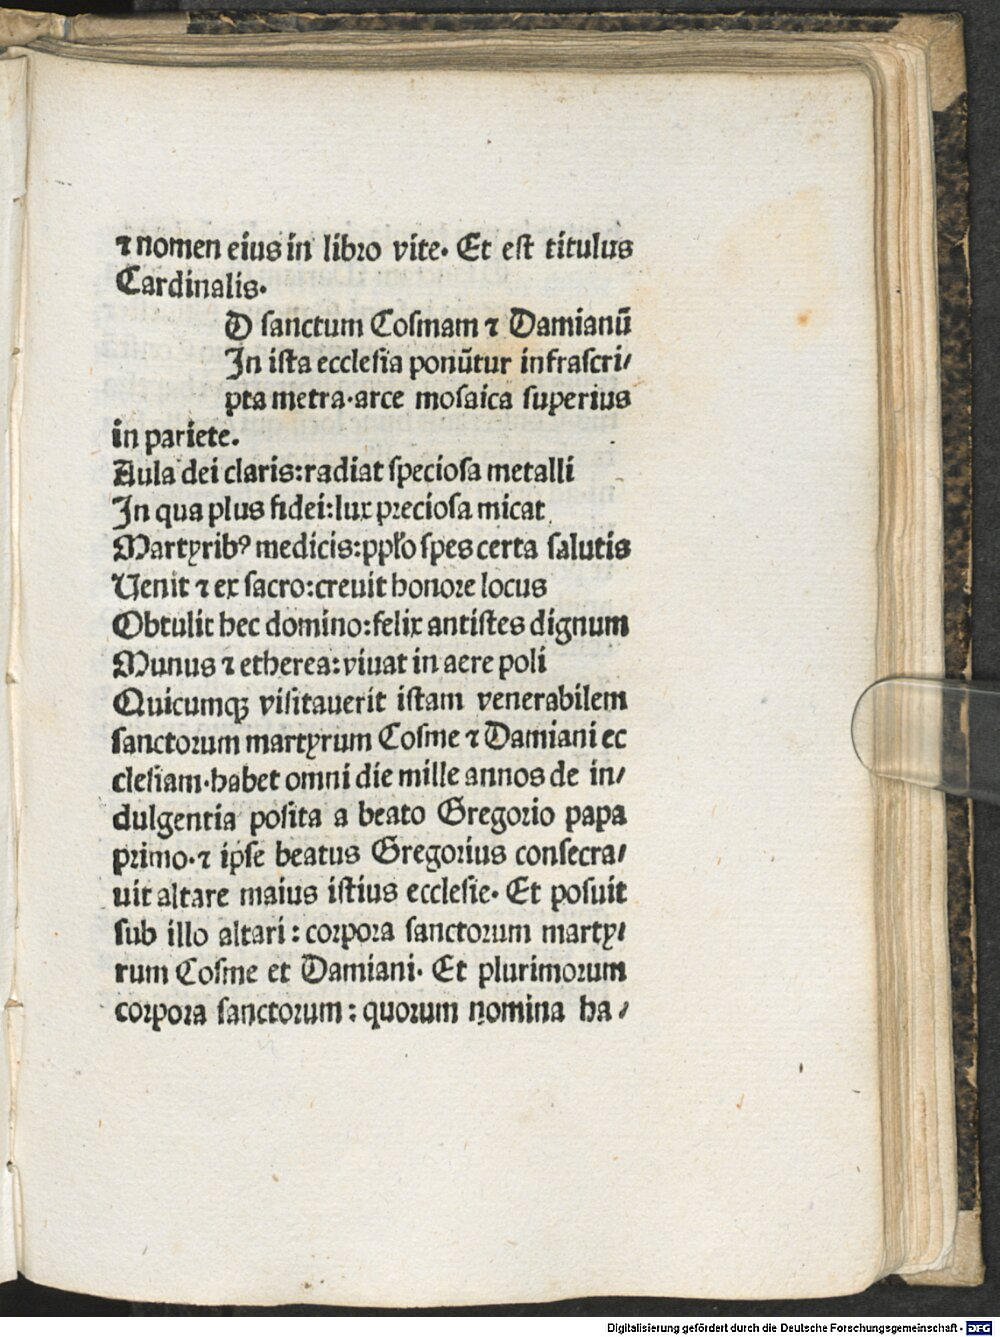 ⁊ nomen eius in libro vite. Et est titulus
Cardinalis.
D sanctum Cosmam ⁊ Damianū
In ista ecclesia ponūtur infrascri/
pta metra.arce mosaica superius
in pariete.
Aula dei claris:radiat speciosa metalli
In qua plus fidei:lux preciosa micat
Martyribꝰ medicis:pplo spes certa salutis
Uenit ⁊ ex sacro:creuit honore locus
Obtulit hec domino:felix antistes dignum
Munus ⁊ etherea:viuat in aere poli
Quicumqꝫ visitauerit istam venerabilem
sanctorum martyrum Cosme ⁊ Damiani ec
clesiam.habet omni die mille annos de in/
dulgentia posita a beato Gregorio papa
primo.⁊ ipse beatus Gregorius consecra/
uit altare maius istius ecclesie. Et posuit
sub illo altari : corpora sanctorum marty/
rum Cosme et Damiani. Et plurimorum
corpora sanctorum : quorum nomina ha/
Digitalisierung gefördert durch die Deutsche Forschungsgemeinschaft - DFG